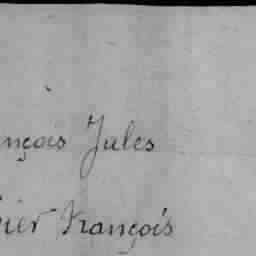 nçois Jules
ier François